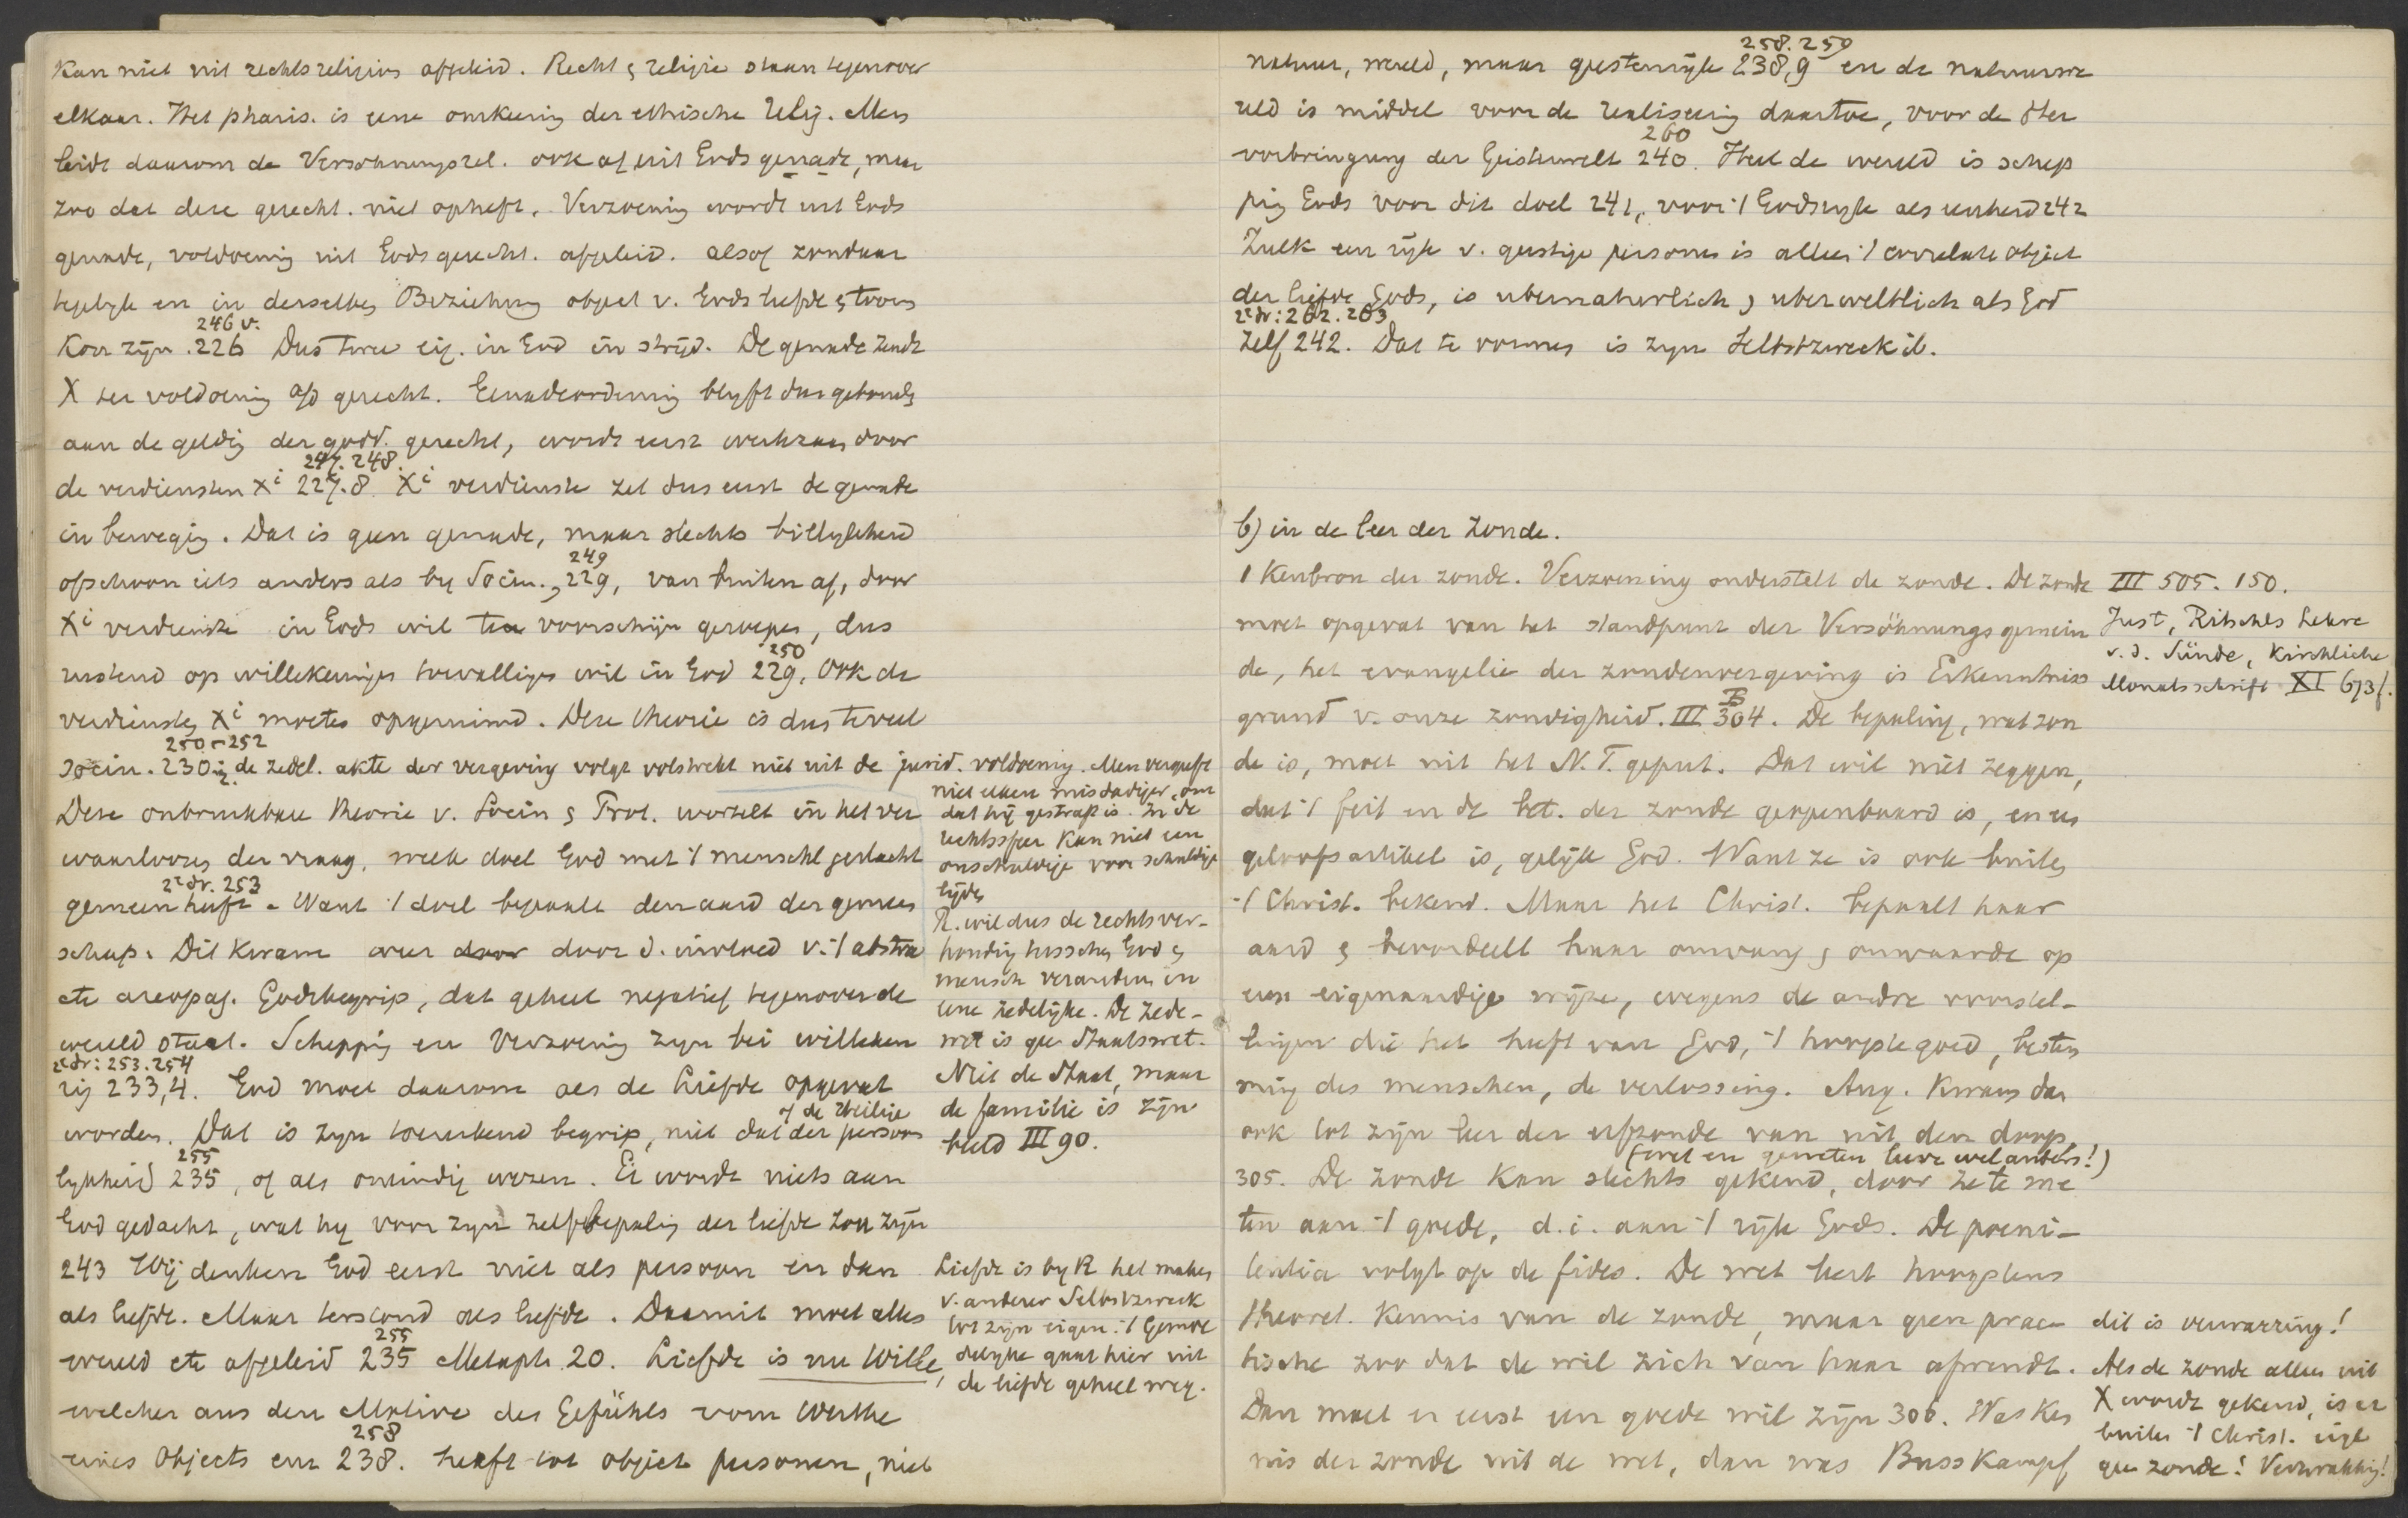 kan niet uit rechtsreligies afgeleid. Recht & religie staan tegenover
elkaar. Het pharis. is eene omkeering der ethische relig. Men
leidt daarom de Versöhnungsrel. ook af uit Gods genade, maar
zoo dat deze gerecht. niet opheft. Verzoening wordt uit Gods
genade, voldoening uit Gods gerecht. afgeleid. alsof zondaar
tegelyk en in derselben Beziehung object v. Gods liefde & toorn
246 v.
kon zijn. 226 Dus twee eig. in God in strijd. De genade zendt
X ter voldoening a/d gerecht. Genadeordening blyft dus gebonden
aan de geldig der godd. gerecht, wordt eerst werkzaam door
247. 248.
de verdiensten Xi 227.8. Xi verdienste zet dus eerst de genade
in beweging. Dat is geen genade, maar slechts billykheid
249
ofschoon iets anders als by Socin., 229, van buiten af, door
Xi verdienste in Gods wil te voorschijn geroepen, dus
250
rustend op willekeurigen toevalligen wil in God 229. Ook de
verdiensten Xi moeten opgeruimd. Deze theorie is dus teveel
250-252
socin. 230 de zedel. akte der vergeving volgt volstrekt niet uit de jurid. voldoening. Men vergeeft
niet elken misdadiger, om
dat hij gestraft is. In de
rechtssfeer kan niet een
onschuldige voor schuldige
lijden
R. wil dus de rechtsver-
houding tusschen God &
mensch veranderen in
eene zedelijke. De zede-
wet is geen Staatswet.
Niet de Staat, maar
de familie is zijn
beeld III 90.
Deze onbruikbare theorie v. Socin & Prot. wortelt in het ver
waarloozen der vraag, welk doel God met 't menschl geslacht
2e dr. 253
gemeen heeft. Want 't doel bepaalt den aard der gemeen
schap. Dit kwam weer door d. invloed v. 't abstra
cte areopag. Godsbegrip, dat geheel negatief tegenover de
wereld staat. Schepping en Verzoening zyn bei willekeu
2e dr: 253.254
rig 233,4. God moet daarom als de Liefde opgevat
of de Heilige
worden. Dat is zyn toereikend begrip, niet dat der persoon
255
lykheid 235, of als oneindig wezen. Er wordt niets aan
God gedacht, wat hy voor zyn zelfbepaling der liefde zou zijn
243 Wij denken God eerst niet als persoon en dan
als liefde. Maar terstond als liefde. Daaruit moet alles
255
wereld etc afgeleid 235 Metaph. 20. Liefde is nu Wille,
welcher aus dem Motive des Gefühls vom Werthe
258
eines Objects enz 238. heeft tot object personen, niet
Liefde is by R het maken
v. anderer Selbstzweck
tot zijn eigen. 't Gemoe
delyke gaat hier uit
de liefde geheel weg.
258. 259
natuur, wereld, maar geestenrijk 238,9 en de natuurwe
reld is middel voor de realiseering daartoe, voor de Her
260
vorbringung der Geisterwelt 240. Heel de wereld is schep
ping Gods voor dit doel 241, voor 't Godsryk als eenheid 242
Zulk een rijk v. geestige personen is alleen 't correlate object
der liefde Gods, is ubernaturlich & uberweltlich als God
2e dr: 262. 263
zelf 242. Dat te vormen is zyn Selbstzweck ib.
b) in de leer der Zonde.
1 Kenbron der zonde. Verzoening onderstelt de zonde. De zonde
moet opgevat van het standpunt der Versöhnungsgemein
de, het evangelie der zondenvergeving is Erkenntniss
grund v. onze zondigheid. III 304. De bepaling, wat zon
de is, moet uit het N. T. geput. Dat wil niet zeggen,
dat 't feit en de bet. der zonde geopenbaard is, en een
geloofsartikel is, gelijk God. Want ze is ook buiten
't Christ. bekend. Maar het Christ. bepaalt haar
aard & beoordeelt haar omvang & onwaarde op
een eigenaardige wijze, wegens de andre voorstel-
lingen die het heeft van God, 't hoogste goed, bestem
ming des menschen, de verlossing. Aug. kwam dan
ook tot zijn leer der erfzonde van uit den doop,
(wet en geweten leere wel anders!)
305. De zonde kan slechts gekend, door ze te me
ten aan 't goede, d.i. aan 't rijk Gods. De poeni-
tentia volgt op de fides. De wet leert hoogstens
theoret. kennis van de zonde, maar geen prac-
tische zoo dat de wil zich van haar afwendt.
Dan moet er eerst een goede wil zijn 306. Was ken
nis der zonde uit de wet, dan was Busskampf
III 505. 150.
Just, Ritschls Lehre
v. d. Sünde, Kirchliche
Monatsschrift XI 673f.
dit is verwarring!
Als de zonde alleen uit
X wordt gekend, is er
buiten 't Christ. eigl
geen zonde! Verzwakking!